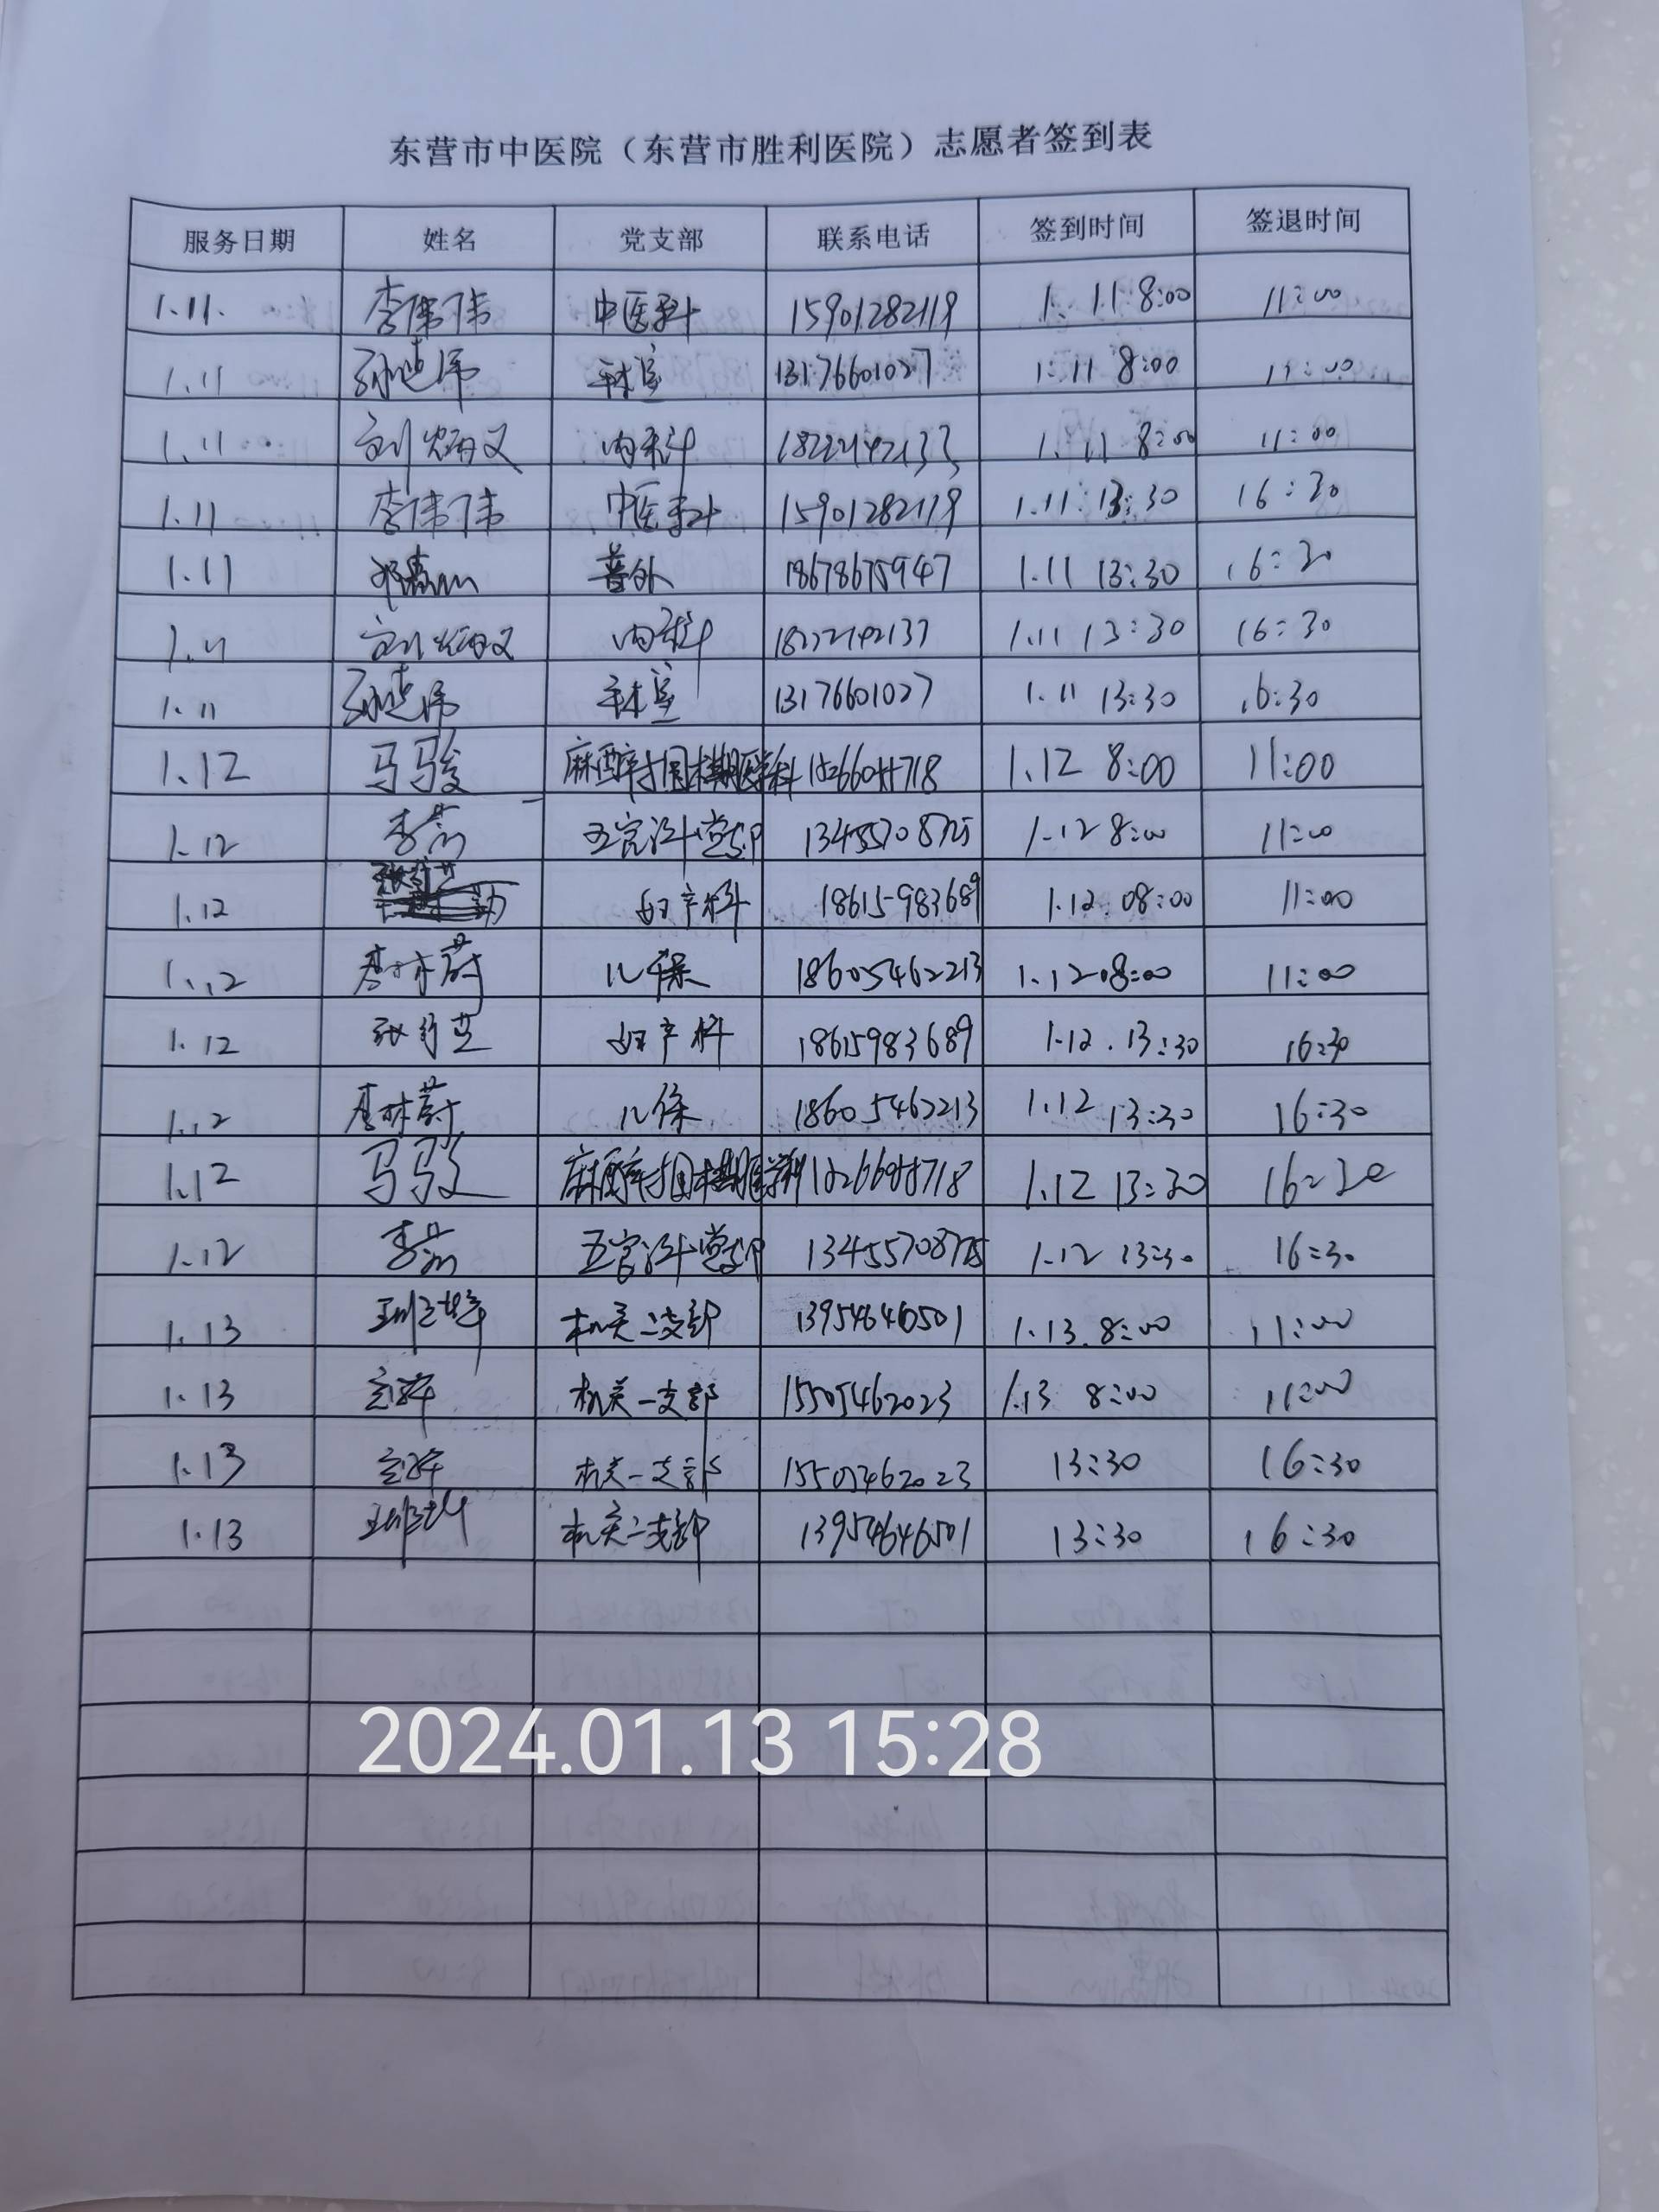 东营市中医院（东营市胜利医院）志愿者签到表
服务日期 姓名 党支部 联系电话 签到时间 签退时间
1.11. 李伟伟 中医科 15901282119 1.11 8:00 11:00
1.11 孙建伟 手术室 13176601027 1.11 8:00 11:00
1.11 刘炳文 内科 1.11 8:00 11:00
1.11 李伟伟 中医科 15901282119 1.11 13:30 16:30
1.11 普外 18678675947 1.11 13:30 16:30
1.11 刘炳文 内科 1.11 13:30 16:30
1.11 孙建伟 手术室 13176601027 1.11 13:30 16:30
1.12 马骏 麻醉与围术期医学科 1.12 8:00 11:00
1.12 李茜 五官科党支部 1.12 8:00 11:00
1.12 妇产科 18615983689 1.12 08:00 11:00
1.12 唐林蔚 儿保 18605462213 1.12 08:00 11:00
1.12 妇产科 18615983689 1.12. 13:30 16:30
1.12 唐林蔚 儿保 18605462213 1.12 13:30 16:30
1.12 马骏 麻醉与围术期医学科 1.12 13:30 16:30
1.12 李茜 五官科党支部 1.12 13:30 16:30
1.13 机关二支部 13954646501 1.13. 8:00 11:00
1.13 机关一支部 15505462023 1.13 8:00 11:00
1.13 机关一支部 15505462023 13:30 16:30
1.13 机关二支部 13954646501 13:30 16:30
2024.01.13 15:28